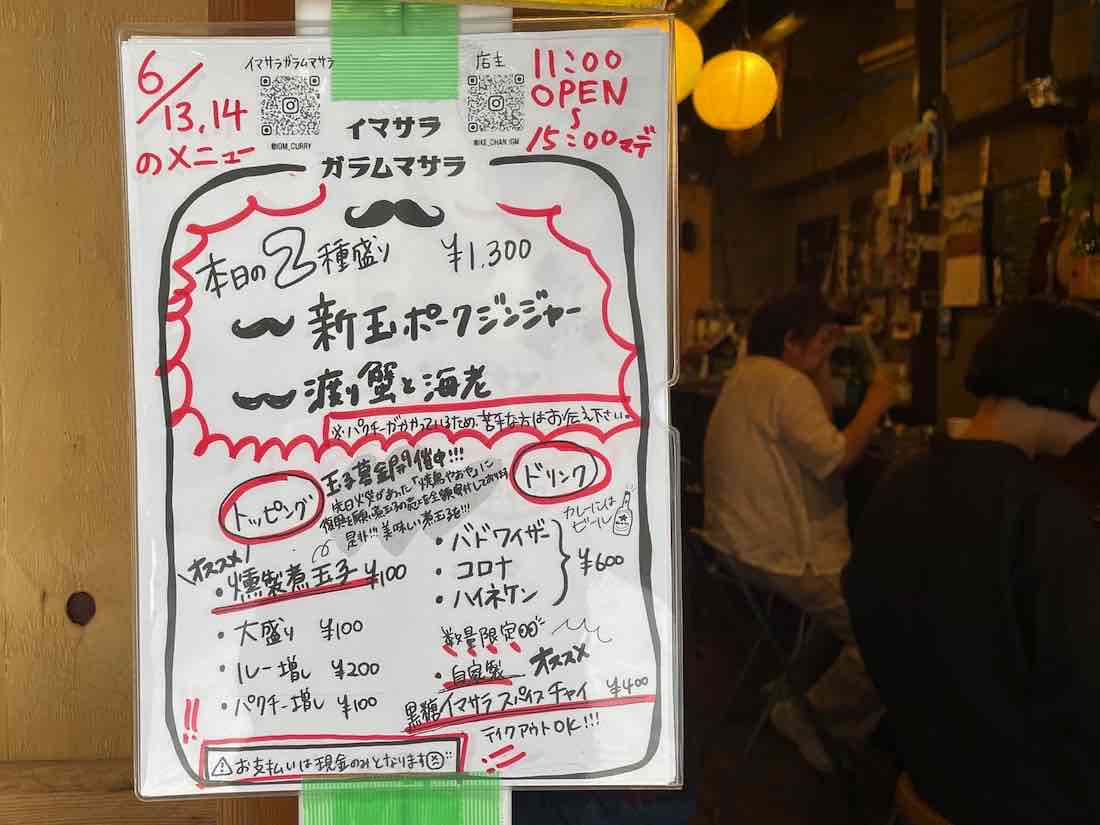 6/13,14
のメニュー
イマサラガラムマサラ
@IGM_CURRY
店主
@IKE_CHAN.IGM
11:00
OPEN
~
15:00マデ
イマサラ
ガラムマサラ
本日の2種盛り ¥1,300
新玉ポークジンジャー
渡り蟹と海老
※パクチーがかかっているため、苦手な方はお伝え下さい。
トッピング
玉子募金開催中!!!
先日火災があった「焼鳥やおや」に
復興を願い煮玉子の売上を全額寄付しております
是非!!!美味しい煮玉子を!!!
\オススメ/
・燻製煮玉子 ¥100
・大盛り ¥100
・ルー増し ¥200
・パクチー増し ¥100
ドリンク
カレーには
ビール
・バドワイザー
・コロナ
・ハイネケン
¥600
数量限定
・自家製 オススメ
黒糖イマサラスパイスチャイ ¥400
テイクアウトOK!!!
!!
お支払いは現金のみとなります